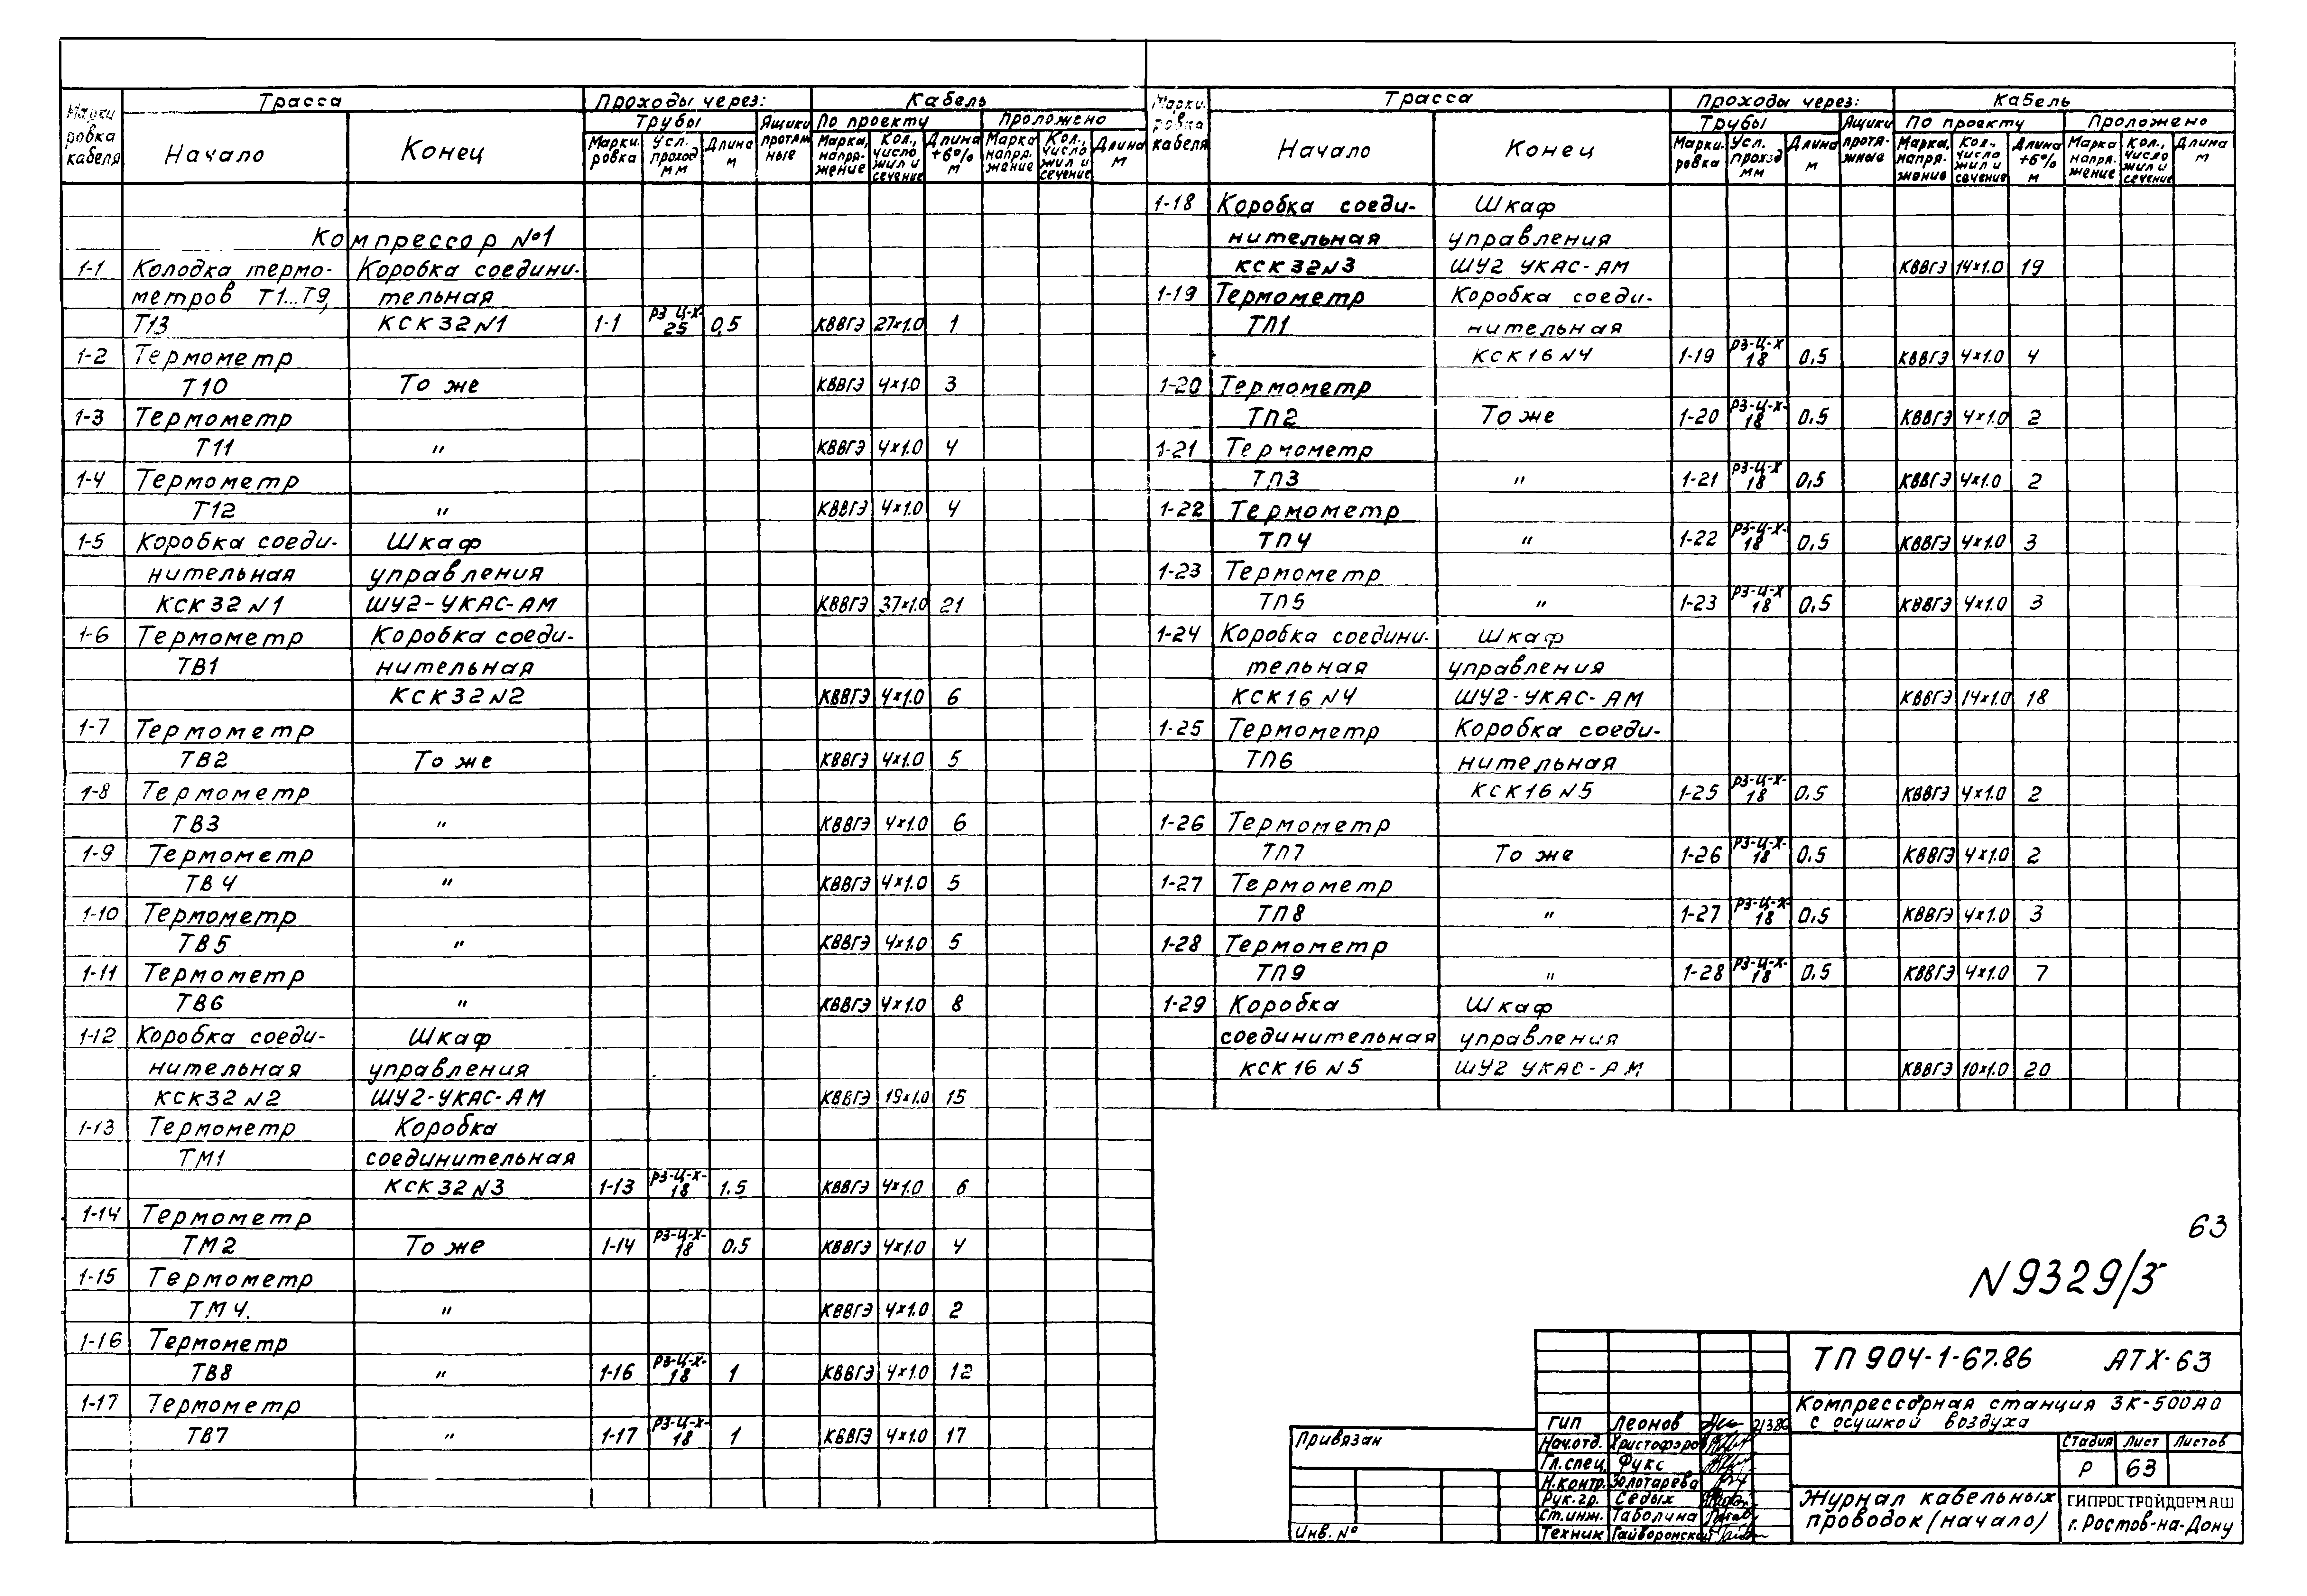 Марки ровка кабеля | Трасса | Проходы через: | Кабель
Трубы | Ящики протяж ные | По проекту | Проложено
Начало | Конец | Марки. ровка | Усл. проход мм | Длина м | Марка, напря- жение | Кол., число жил и сечение | Длина +6% м | Марка напря- жение | Кол., число жил и сечение | Длина м
Компрессор №1
1-1 Колодка термо- Коробка соедини-
метров Т1...Т9, тельная
Т13 КСК32 N1 1-1 РЗ-Ц-Х- 25 0,5 КВВГЭ 27×1.0 1
1-2 Термометр
Т10 То же КВВГЭ 4×1.0 3
1-3 Термометр
Т11 " КВВГЭ 4×1.0 4
1-4 Термометр
Т12 " КВВГЭ 4×1.0 4
1-5 Коробка соеди- Шкаф
нительная управления
КСК32 N1 ШУ2-УКАС-АМ КВВГЭ 37×1.0 21
1-6 Термометр Коробка соеди-
ТВ1 нительная
КСК32 N2 КВВГЭ 4×1.0 6
1-7 Термометр
ТВ2 То же КВВГЭ 4×1.0 5
1-8 Термометр
ТВ3 " КВВГЭ 4×1.0 6
1-9 Термометр
ТВ4 " КВВГЭ 4×1.0 5
1-10 Термометр
ТВ5 " КВВГЭ 4×1.0 5
1-11 Термометр
ТВ6 " КВВГЭ 4×1.0 8
1-12 Коробка соеди- Шкаф
нительная управления
КСК32 N2 ШУ2-УКАС-АМ КВВГЭ 19×1.0 15
1-13 Термометр Коробка
ТМ1 соединительная
КСК32 N3 1-13 РЗ-Ц-Х- 18 1.5 КВВГЭ 4×1.0 6
1-14 Термометр
ТМ2 То же 1-14 РЗ-Ц-Х- 18 0.5 КВВГЭ 4×1.0 4
1-15 Термометр
ТМ4. " КВВГЭ 4×1.0 2
1-16 Термометр
ТВ8 " 1-16 РЗ-Ц-Х- 18 1 КВВГЭ 4×1.0 12
1-17 Термометр
ТВ7 " 1-17 РЗ-Ц-Х- 18 1 КВВГЭ 4×1.0 17
Марки. ровка кабеля | Трасса | Проходы через: | Кабель
Трубы | Ящики протя- жные | По проекту | Проложено
Начало | Конец | Марки. ровка | Усл. проход мм | Длина м | Марка, напря- жение | Кол., число жил и сечение | Длина +6% м | Марка напря- жение | Кол., число жил и сечение | Длина м
1-18 Коробка соеди- Шкаф
нительная управления
КСК32 N3 ШУ2 УКАС-АМ КВВГЭ 14×1.0 19
1-19 Термометр Коробка соеди-
ТП1 нительная
КСК16 N4 1-19 РЗ-Ц-Х 18 0.5 КВВГЭ 4×1.0 4
1-20 Термометр
ТП2 То же 1-20 РЗ-Ц-Х- 18 0.5 КВВГЭ 4×1.0 2
1-21 Термометр
ТП3 " 1-21 РЗ-Ц-Х 18 0,5 КВВГЭ 4×1.0 2
1-22 Термометр
ТП4 " 1-22 РЗ-Ц-Х- 18 0,5 КВВГЭ 4×1.0 3
1-23 Термометр
ТП5 " 1-23 РЗ-Ц-Х 18 0,5 КВВГЭ 4×1.0 3
1-24 Коробка соедини- Шкаф
тельная управления
КСК16 N4 ШУ2-УКАС-АМ КВВГЭ 14×1.0 18
1-25 Термометр Коробка соеди-
ТП6 нительная
КСК16 N5 1-25 РЗ-Ц-Х- 18 0.5 КВВГЭ 4×1.0 2
1-26 Термометр
ТП7 То же 1-26 РЗ-Ц-Х- 18 0.5 КВВГЭ 4×1.0 2
1-27 Термометр
ТП8 " 1-27 РЗ-Ц-Х- 18 0.5 КВВГЭ 4×1.0 3
1-28 Термометр
ТП9 " 1-28 РЗ-Ц-Х- 18 0.5 КВВГЭ 4×1.0 7
1-29 Коробка Шкаф
соединительная управления
КСК 16 N5 ШУ2 УКАС-АМ КВВГЭ 10×1.0 20
63
N9329/3
ТП 904-1-67.86 АТХ-63
Компрессорная станция 3К-500АО
с осушкой воздуха
ГИП Леонов 21386
Нач.отд. Христофоров
Гл.спец. Фукс
Н.контр. Золотарева
Рук.гр. Седых
Ст.инж. Таболина
Техник Гайворонская
Привязан
Инв. №
Стадия Лист Листов
Р 63
Журнал кабельных
проводок (начало)
ГИПРОСТРОЙДОРМАШ
г. Ростов-на-Дону